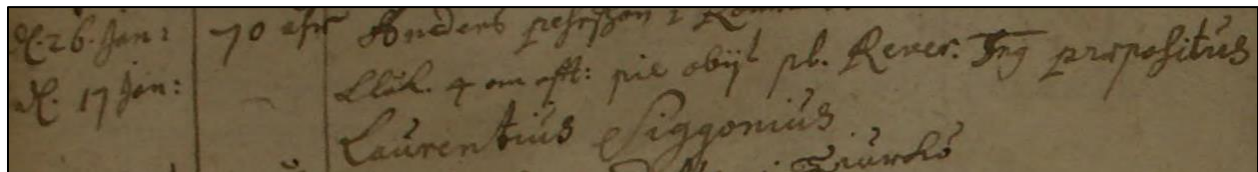 d. 26. Jan: 70 åhr Anders pehrsson i
d. 17 Jan: Klåck. 4 om afft: pie obijt pl. Rever: Dns præpositus
Laurentius Siggonius